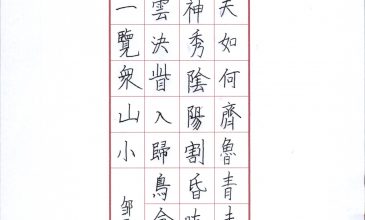 夫如何齊魯青未
神秀陰陽割昏
雲決眥入歸鳥會
一覽衆山小
鄒